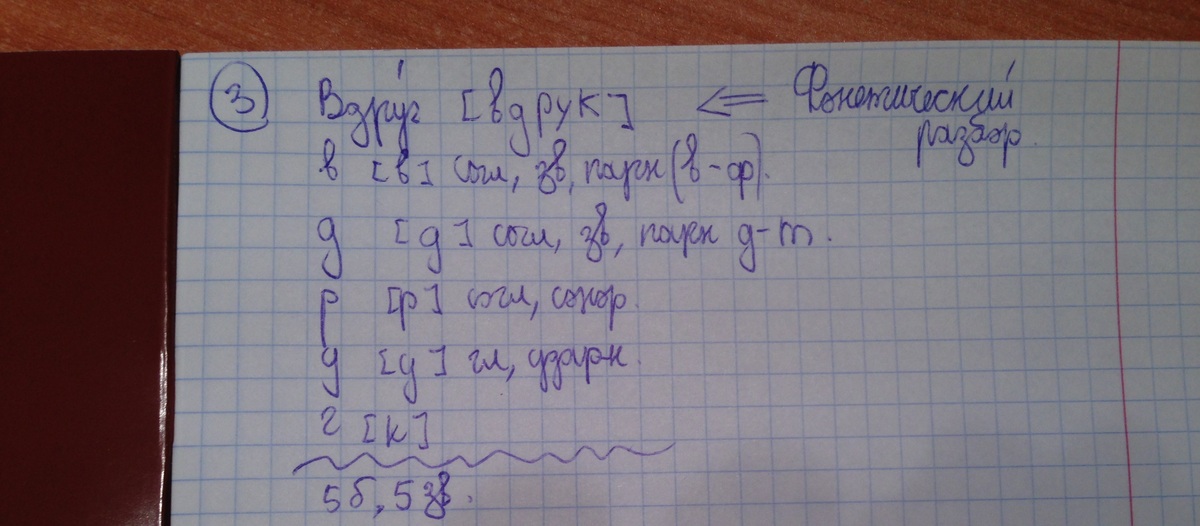 ③ Вдру́г [вдрук] <= Фонетический
разбор.
в [в] согл, зв, парн (в-ф).
д [д] согл, зв, парн д-т.
р [р] согл, сонор.
у [у] гл, ударн.
г [к]
5б, 5 зв.